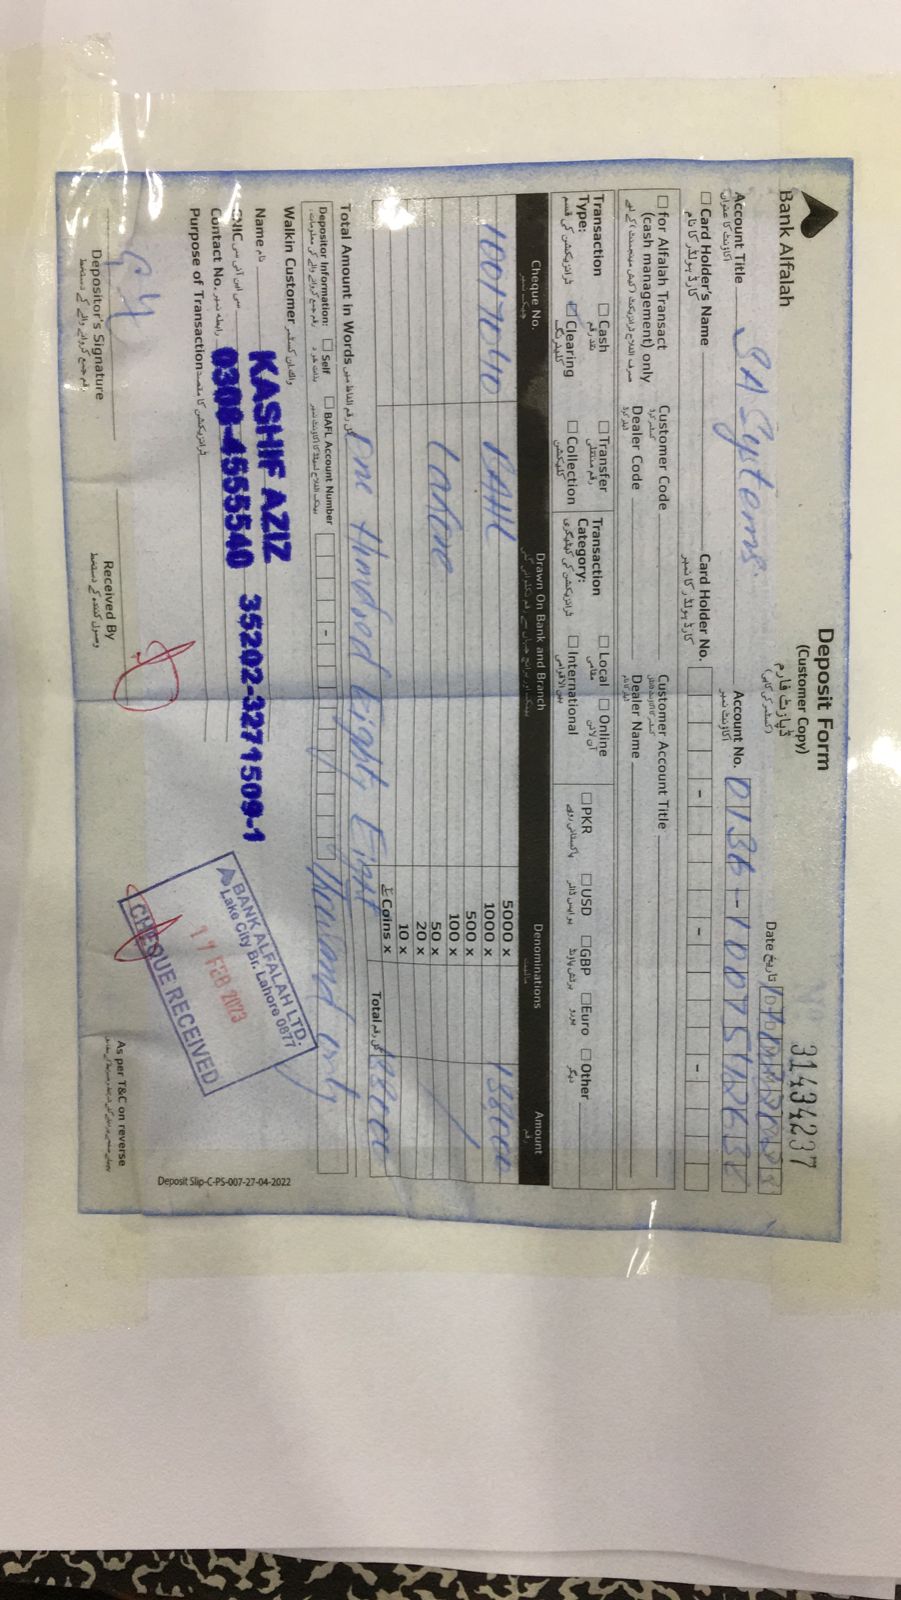 Bank Alfalah
Deposit Form
(Customer Copy)
ڈپازٹ فارم
(کسٹمر کی کاپی)
Nº 31434237
Date تاریخ
Account Title SA Systems
اکاؤنٹ کا عنوان
Account No. 0136-1007541263
اکاؤنٹ نمبر
Card Holder's Name
کارڈ ہولڈر کا نام
Card Holder No.
کارڈ ہولڈر نمبر
for Alfalah Transact
(cash management) only
Customer Code
Customer Account Title
Dealer Code
Dealer Name
Transaction Type:
ٹرانزیکشن کی قسم
Cash
نقد رقم
Transfer
رقم منتقلی
Clearing
کلیئرنگ
Collection
کلیکشن
Transaction Category:
ٹرانزیکشن کی کیٹیگری
Local
مقامی
Online
آن لائن
International
بین الاقوامی
PKR
پاکستانی روپے
USD
یو ایس ڈالر
GBP
برٹش پاؤنڈ
Euro
یورو
Other
دیگر
Cheque No.
چیک نمبر
Drawn On Bank and Branch
Denominations
مالیت
Amount
رقم
10017040 BAHL 5000 x 188,000
1000 x
500 x
Lahore 100 x
50 x
20 x
10 x
Coins x
Total کل رقم 188000
Total Amount in Words کل رقم الفاظ میں One Hundred Eighty Eight
Thousand only
Depositor Information:
Self
BAFL Account Number
Walkin Customer واک ان کسٹمر
Name نام KASHIF AZIZ
CNIC سی این آئی سی 35202-3271509-1
Contact No. رابطہ نمبر 0308-4555540
Purpose of Transaction ٹرانزیکشن کا مقصد
BANK ALFALAH LTD.
Lake City Br. Lahore 0877
17 FEB 2023
CHEQUE RECEIVED
Depositor's Signature
رقم جمع کروانے والے کے دستخط
Received By
وصول کنندہ کے دستخط
As per T&C on reverse
Deposit Slip-C-PS-007-27-04-2022